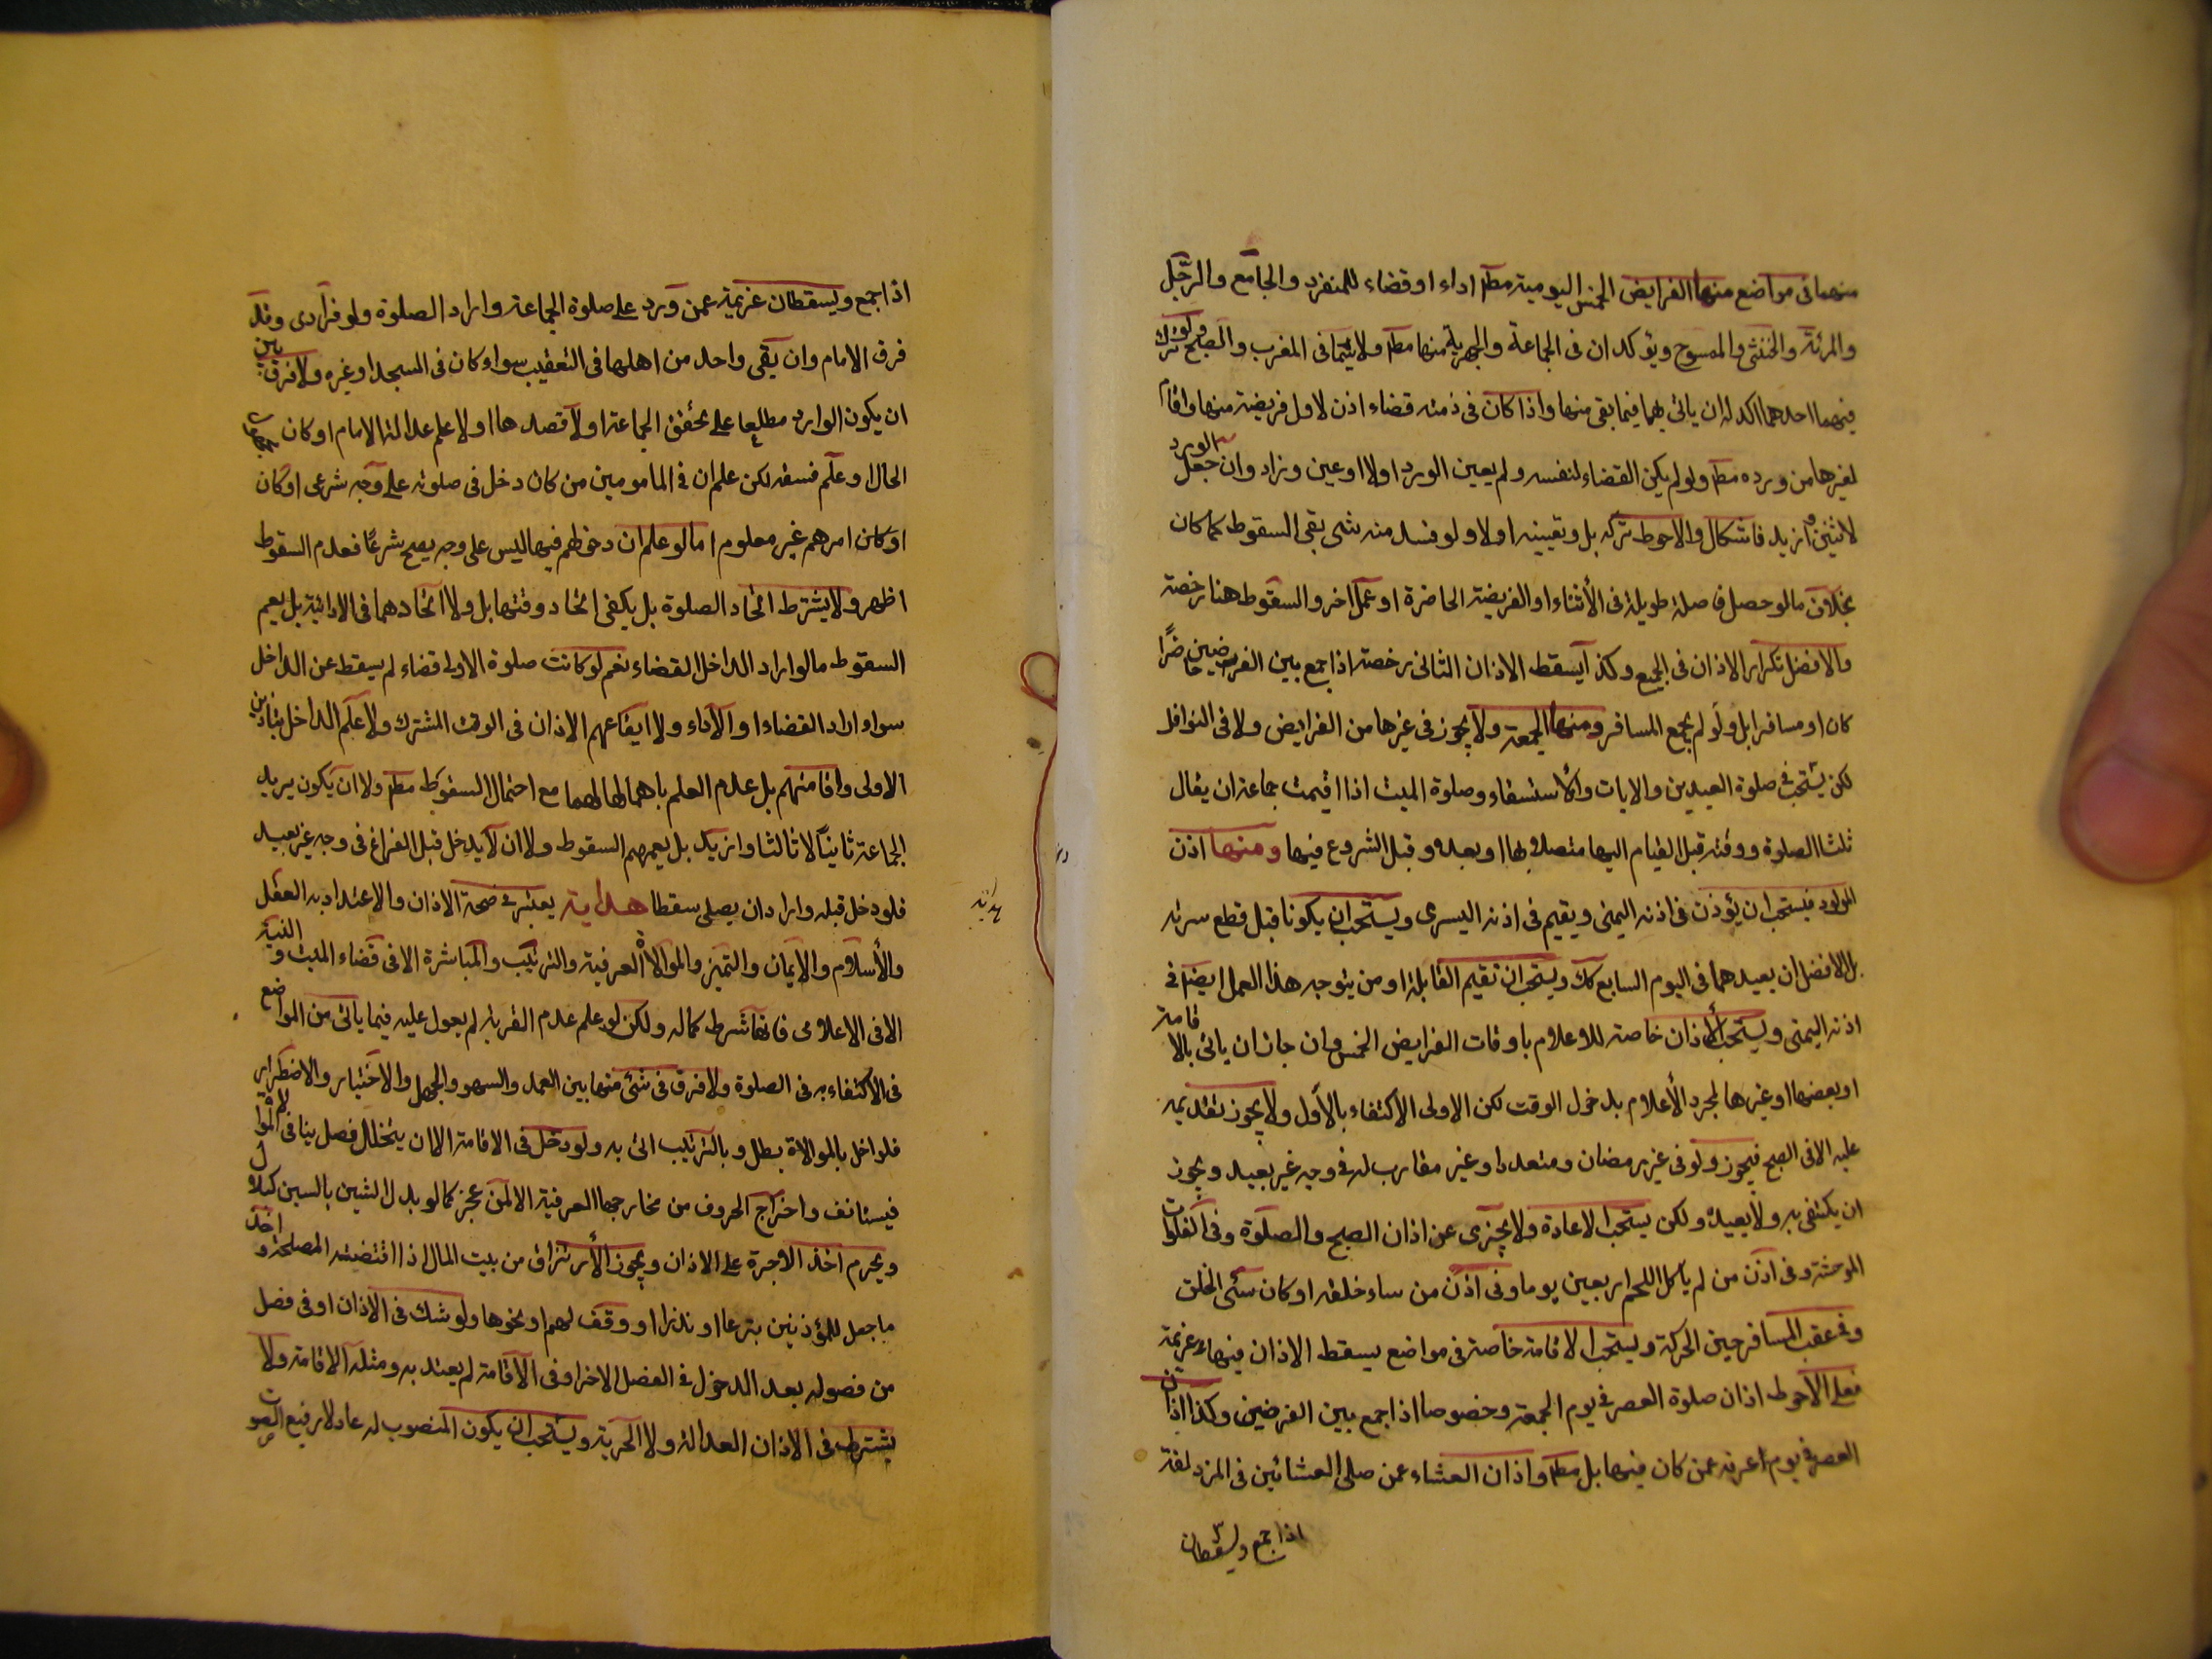 منهما فى مواضع منها الفرايض الخمس اليومية مطم اداء او قضاء للمنفرد والجامع والرجل
والمرئة والخنثى والممسوح ويتوكدان فى الجماعة والجهرية منها مطم ولا سيما فى المغرب والصبح ولو ترك
فيهما احدهما اكد له ان ياتى بهما فيما بقى منها واذا كان فى ذمته قضاء اذن لاول فريضة منها واقام
لغيرها من ورده مطم ولو لم يكن القضاء لنفسه ولم يعين الورد اولا او عين وزاد وان جعل الورد
لاثنين وازيد فاشكال والاحوط تركه بل وتعيينه اولا ولو فسد منه شى بقى السقوط كما كان
بخلاف ما لو حصل فاصلة طويلة فى الأثناء او الفريضة الحاضرة او عمل اخر والسقوط هنا رخصة
والافضل تكرار الاذان فى الجميع وكذا يسقط الاذان الثانى رخصة اذا جمع بين الفريضين حاضرًا
كان او مسافرا بل ولو لم يجمع المسافر ومنها الجمعة ولا يجوز فى غيرها من الفرايض ولا فى النوافل
لكن يستحب فى صلوة العيدين والايات والأستسقاء وصلوة الميت اذا اقيمت جماعة ان يقال
ثلثا الصلوة ووقته قبل القيام اليها متصلا بها او بعده وقبل الشروع فيها ومنها اذن
المولود فيستحب ان يؤذن فى اذنه اليمنى ويقيم فى اذنه اليسرى ويستحب ان يكونا قبل قطع سرته
بل الافضل ان يعيدهما فى اليوم السابع كك ويستحب ان تقيم القابلة او من يتوجه هذا العمل ايضا فى
اذنه اليمنى ويستحب الأذان خاصة للاعلام باوقات الفرايض الخمس وان جاز ان ياتى بالاقامة
او بعضها او غيرها لمجرد الأعلام بدخول الوقت لكن الاولى الاكتفاء بالأول ولا يجوز تقديمه
عليه الا فى الصبح فيجوز ولو فى غير رمضان ومتعددا وغير مقارب له فى وجه غير بعيد ويجوز
ان يكتفى به ولا يعيده ولكن يستحب الاعادة ولا يجزى عن اذان الصبح والصلوة وفى الفلوات
الموحشة وفى اذن من لم ياكل اللحم اربعين يوما وفى اذن من ساء خلقه او كان سئى الخلق
وفى عقب المسافر حين الحركة ويستحب الاقامة خاصة فى مواضع يسقط الاذان فيها عزيمة
فعلى الاحوط اذان صلوة العصر فى يوم الجمعة وخصوصا اذا جمع بين الفرضين وكذا اذان
العصر فى يوم عرفة عمن كان فيها بل مطم واذان العشاء عمن صلى العشائين فى المزدلفة
اذا جمع ويسقطان
اذا جمع ويسقطان عزيمة عمن ورد على صلوة الجماعة واراد الصلوة ولو فرادى وقد
فرق الامام وان بقى واحد من اهلها فى التعقيب سواء كان فى المسجد او غيره ولا فرق بين
ان يكون الوارد مطلعا على تحقق الجماعة اولا قصدها اولا علم عدالة الامام او كان
الحال او علم فسقه لكن علم ان فى المامومين من كان دخل فى صلوته على وجه شرعى او كان
او كان امرهم غير معلوم اما لو علم ان دخولهم فيها ليس على وجه يصح شرعًا فعدم السقوط
اظهر ولا يشترط اتحاد الصلوة بل يكفى اتحاد وقتها بل ولا اتحادهما فى الادائية بل يعم
السقوط ما لو اراد الداخل القضاء نعم لو كانت صلوة الاولى قضاء لم يسقط عن الداخل
سواء اراد القضاء او الأداء ولا ايقاعهم الاذان فى الوقت المشترك ولا علم الداخل بتاذين
الاولى واقامتهم بل عدم العلم باهمالها لهما مع احتمال السقوط مطم ولا ان يكون يريد
الجماعة ثانيًا لا ثالثا وازيد بل يعمهم السقوط ولا ان لا يدخل قبل الفراغ فى وجه غير بعيد
فلو دخل قبله واراد ان يصلى سقطا هداية يعتبر فى صحة الاذان والاعتداد به العقل
والأسلام والايمان والتميز والموالاة العرفية والترتيب والمباشرة الا فى قضاء الميت والنية
الا فى الاعلامى فانها شرط كماله ولكن لو علم عدم القربة لم يعول عليه فيما ياتى من المواضع
فى الاكتفاء به فى الصلوة ولا فرق فى شئى منها بين العمد والسهو والجهل والاختيار والاضطرار
فلو اخل بالموالاة بطل وبالترتيب اتى به ولو دخل فى الاقامة الا ان يتخلل فصل ينافى الموالاة
فيستانف واخراج الحروف من مخارجها العرفية الا لمن عجز كما لو بدل الشين بالسين كبلال
ويحرم اخذ الاجرة على الاذان ويجوز الأرتزاق من بيت المال اذا اقتضته المصلحة واخذ
ما جعل للمؤذنين تبرعا او نذرا او وقف لهم او نحوها ولو شك فى الاذان او فى فصل
من فصوله بعد الدخول فى الفصل الاخر او فى الاقامة لم يعتد به ومثله الاقامة ولا
يشترط فى الاذان العدالة ولا الحرية ويستحب ان يكون المنصوب له عادلا رفيع الصوت